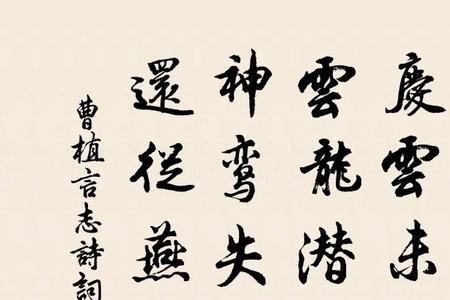 慶雲未
雲龍潜
神鸾失
還從燕
曹植言志詩詞